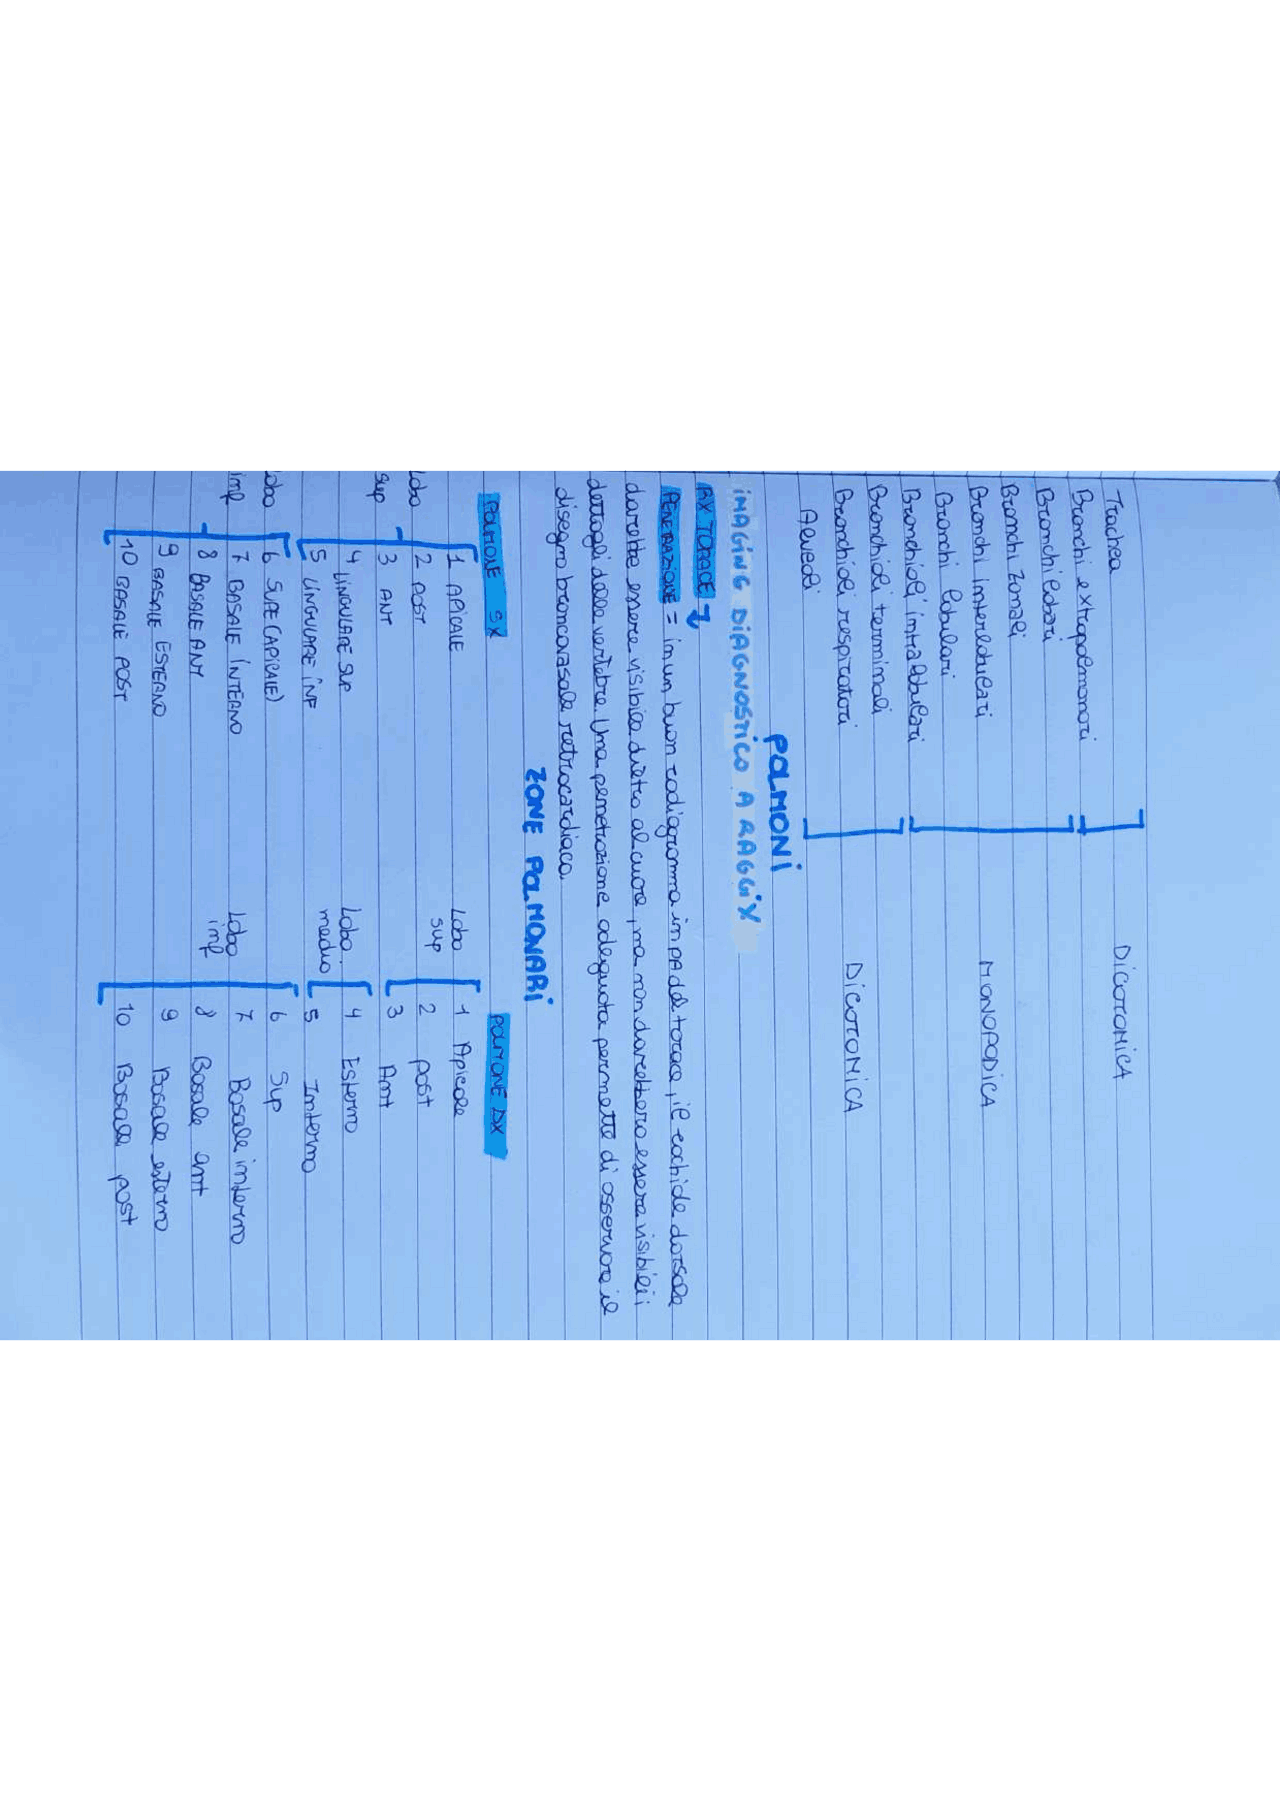 Trachea
Bronchi extrapolmonari
DICOTOMICA
Bronchi lobari
Bronchi Zonali
Bronchi interlobulari
MONOPODICA
Bronchi lobulari
Bronchioli intralobulari
Bronchioli terminali
Bronchioli respiratori
DICOTOMICA
Alveoli
POLMONI
IMAGING DIAGNOSTICO A RAGGI X
RX TORACE
PENETRAZIONE = in un buon radiogramma in PA del torace, il rachide dorsale
darebbe essere visibile dietro al cuore, ma non darebbero essere visibili i
dettagli delle vertebre. Una penetrazione adeguata permette di osservare il
disegno broncovasale retrocardiaco.
ZONE POLMONARI
POLMONE SX
POLMONE DX
1 APICALE
Lobo 2 POST
sup 3 ANT
4 LINGULARE SUP
5 LINGULARE INF
Lobo 6 SUPE (APICALE)
inf 7 BASALE INTERNO
8 BASALE ANT
9 BASALE ESTERNO
10 BASALE POST
Lobo 1 Apicale
sup 2 post
3 Ant
Lobo 4 Esterno
medio 5 Interno
6 Sup
Lobo 7 Basale interno
inf 8 Basale ant
9 Basale esterno
10 Basale post